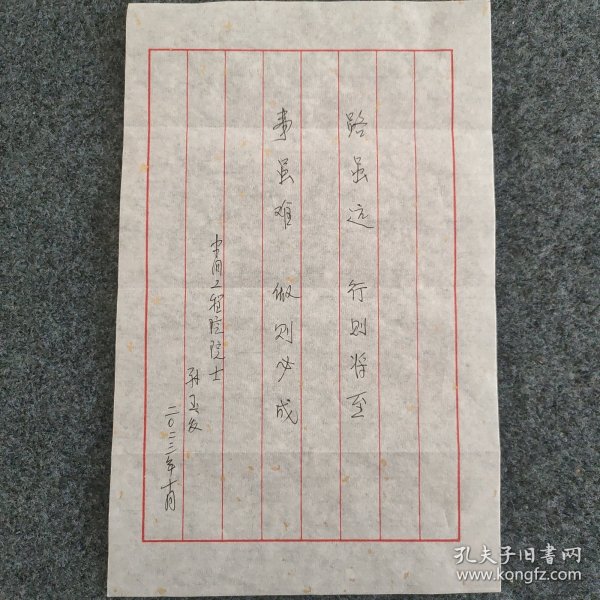 路虽远 行则将至
事虽难 做则必成
中国工程院院士
孙玉发
二〇二三年十月
孔夫子旧书网
www.kongfz.com